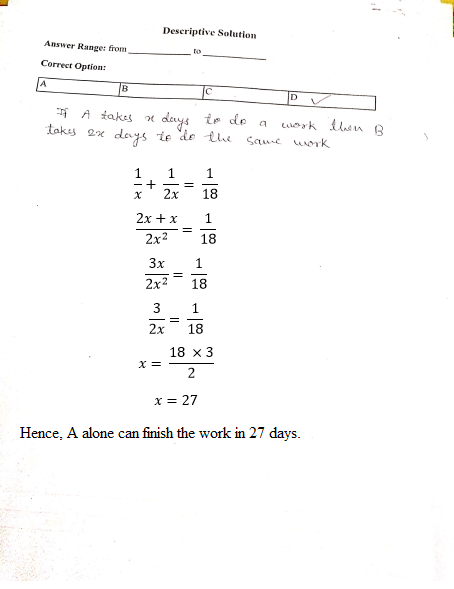 Descriptive Solution
Answer Range: from ____________ to ____________
Correct Option:
A B C D ✓
If A takes x days to do a work then B
takes 2x days to do the same work
1/x + 1/2x = 1/18
(2x + x)/2x² = 1/18
3x/2x² = 1/18
3/2x = 1/18
x = (18 × 3)/2
x = 27
Hence, A alone can finish the work in 27 days.